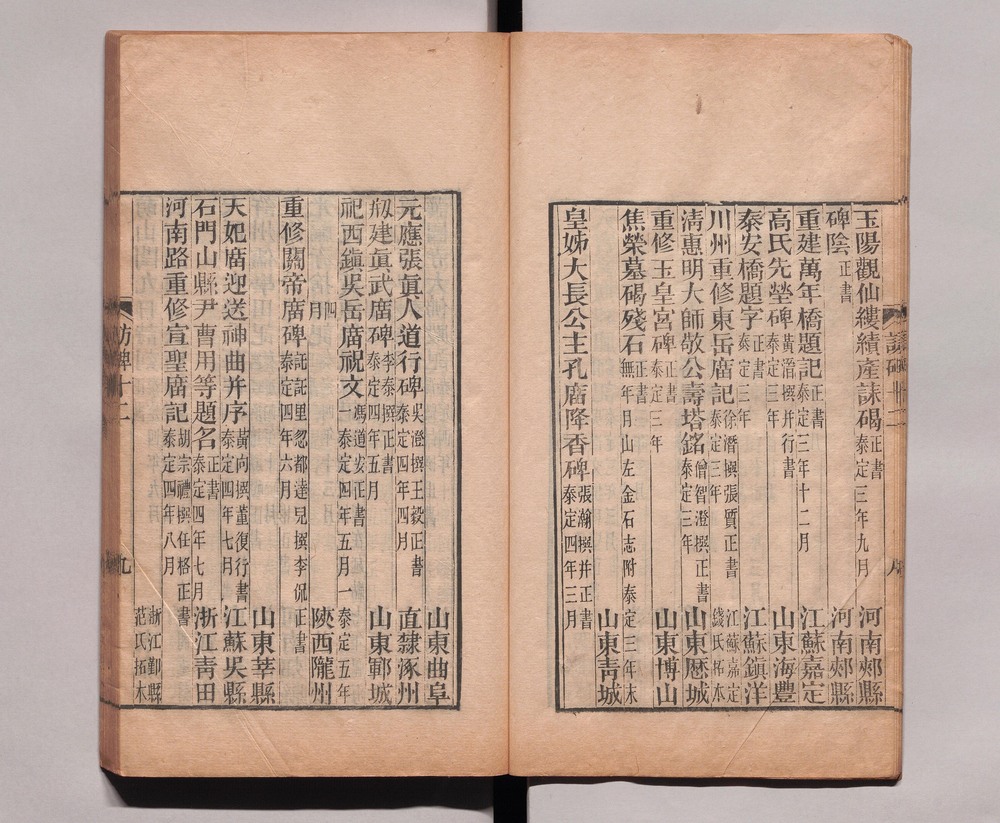 玉陽觀仙縷績産誄碣 正書 泰定三年九月 河南郟縣
碑陰 正書 河南郟縣
重建萬年橋題記 正書 泰定三年十二月 江蘇嘉定
高氏先塋碑 黃溍撰并行書 泰定三年 山東海豐
泰安橋題字 正書 泰定三年 江蘇鎮洋
川州重修東岳廟記 徐潛撰張質正書 泰定三年 江蘇嘉定錢氏拓本
清惠明大師敬公壽塔銘 僧智澄撰正書 泰定三年 山東歷城
重修玉皇宮碑 正書 泰定三年 山東博山
焦榮墓碣殘石 正書 無年月山左金石志附泰定三年末
山東青城
皇姊大長公主孔廟降香碑 張瀚撰并正書 泰定四年三月
訪碑十二
山東曲阜
元應張眞人道行碑 吳澄撰王毅正書 泰定四年四月 直隸涿州
刱建眞武廟碑 李泰撰正書 泰定四年五月 山東鄆城
祀西鎮吳岳廟祝文 一馮道安正書 泰定四年五月 一泰定五年
四月 陝西隴州
重修關帝廟碑 託託里忽都達兒撰李侃正書 泰定四年六月
山東莘縣
天妃廟迎送神曲并序 黃向撰董復行書 泰定四年七月 江蘇吳縣
石門山縣尹曹用等題名 正書 泰定四年七月 浙江青田
河南路重修宣聖廟記 胡宗禮撰任格正書 泰定四年八月
浙江鄞縣范氏拓本
訪碑十二
九